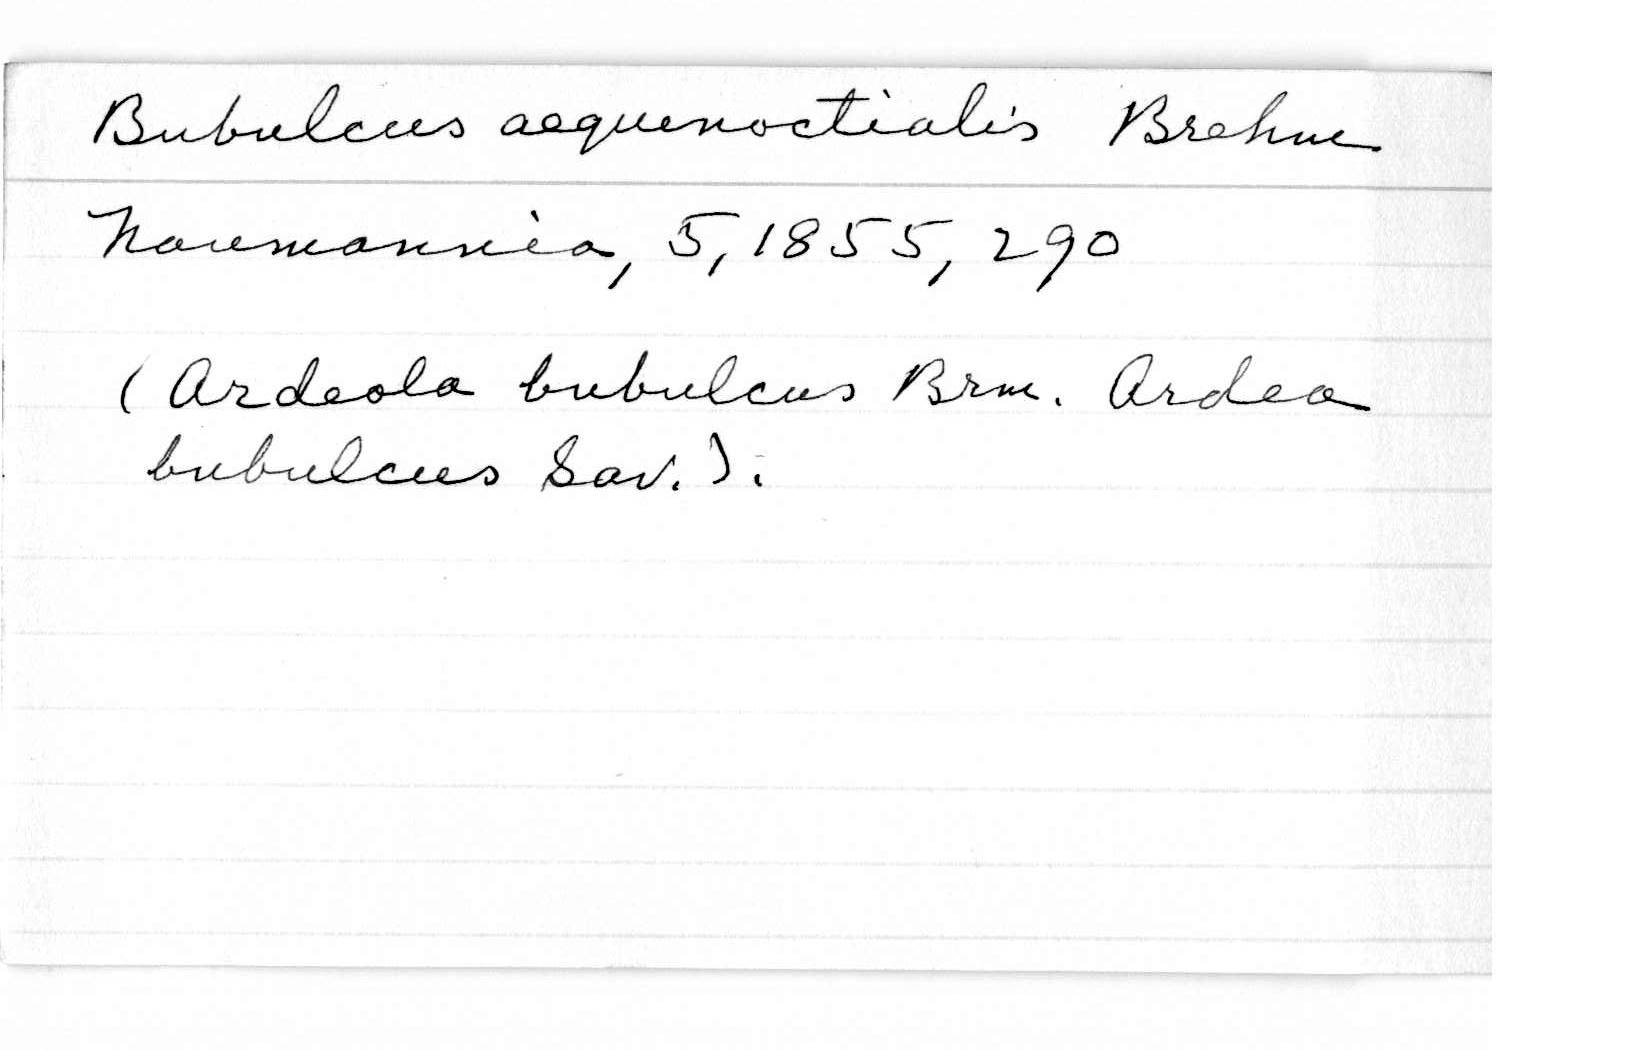 Bubulcus aequinoctialis Brehm
Naumannia, 5, 1855, 290
(Ardeola bubulcus Brm. Ardea
bubulcus Sav.).